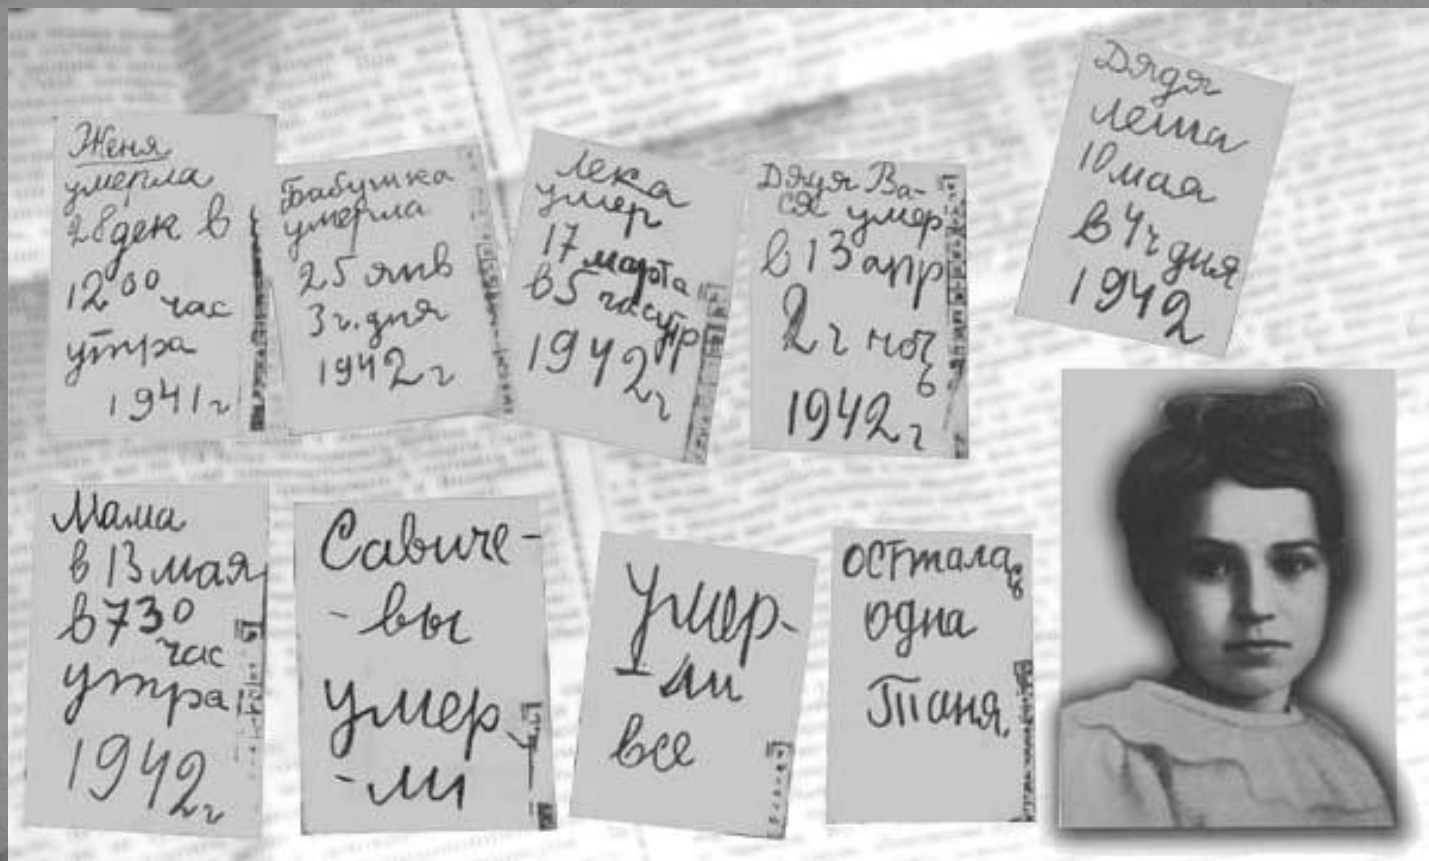 Женя
умерла
28 дек в
12 00 час
утра
1941 г
Бабушка
умерла
25 янв
3 ч. дня
1942 г
Лека
умер
17 марта
в 5 час утр
1942 г
Дядя Ва-
ся умер
в 13 апр
2 ч ноч
ь
1942 г
Дядя
Леша
10 мая
в 4 ч дня
1942
Мама
в 13 мая
в 7 30
час
утра
1942 г
Савиче-
-вы
умер
-ли
Умер-
-ли
все
осттала
одна
Таня.